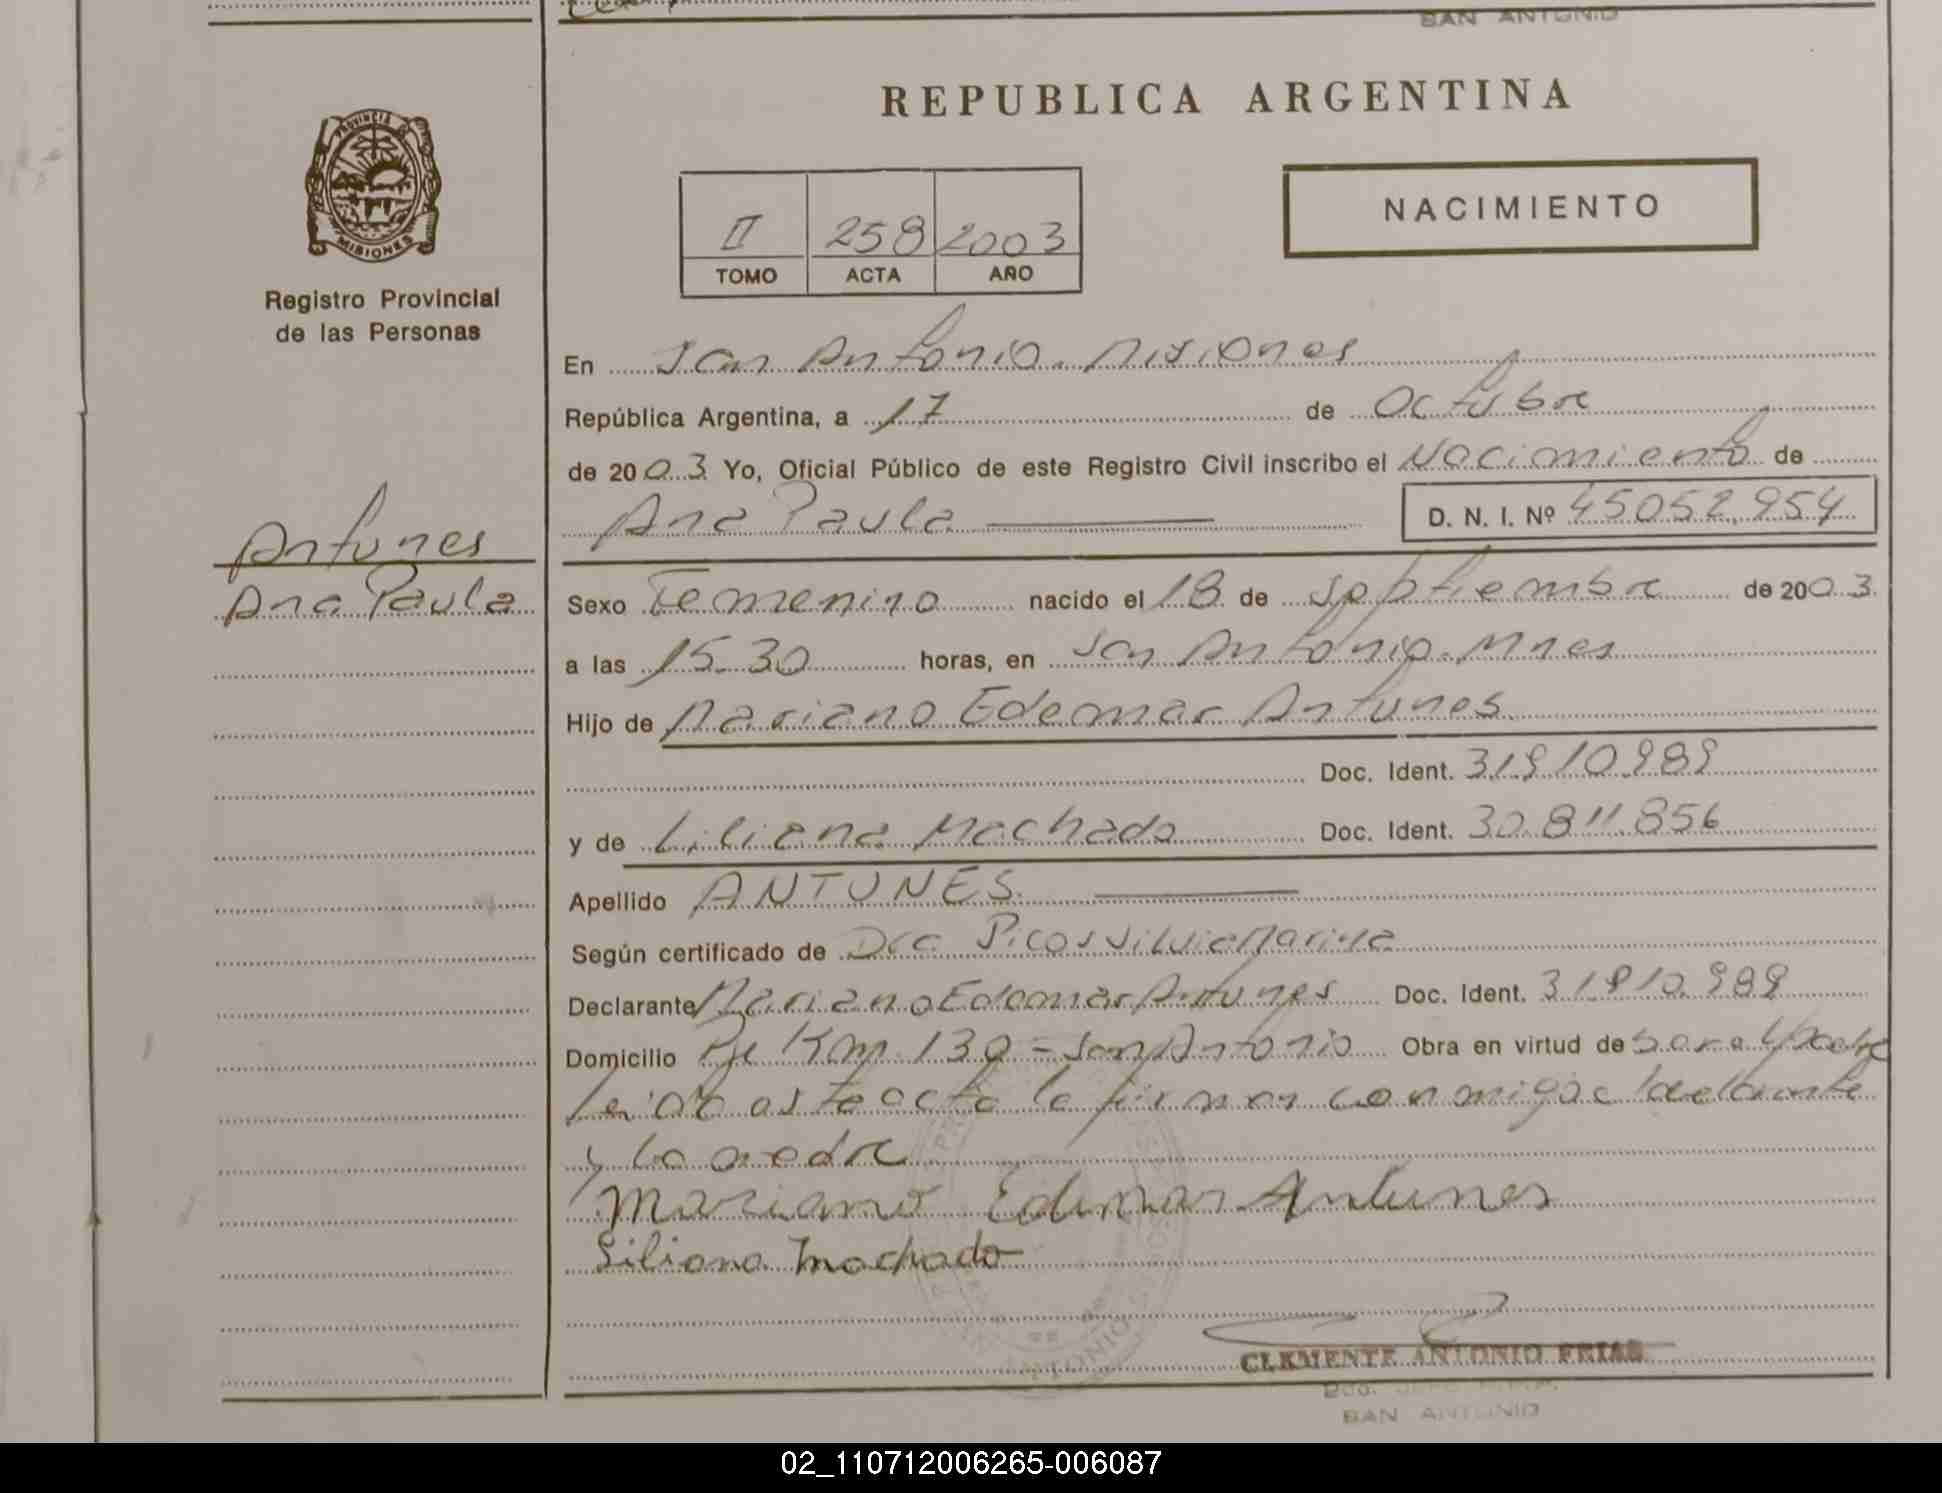 SAN ANTONIO
REPUBLICA ARGENTINA
PROVINCIA DE
MISIONES
Registro Provincial
de las Personas
II 258 2003
TOMO ACTA AÑO
NACIMIENTO
En San Antonio. Misiones
República Argentina, a 17 de Octubre
de 2003 Yo, Oficial Público de este Registro Civil inscribo el Nacimiento de
Ana Paula D. N. I. Nº 45052.954
Antunes
Ana Paula
Sexo Femenino nacido el 18 de Septiembre de 2003
a las 15.30 horas, en San Antonio. Mnes
Hijo de Mariano Edemar Antunes
Doc. Ident. 31910.989
y de Liliana Machado Doc. Ident. 30.811.856
Apellido ANTUNES
Según certificado de Dra Picos Silvia Marina
Declarante Mariano Edemar Antunes Doc. Ident. 31910.989
Domicilio Pje Km 130 - San Antonio Obra en virtud de ser el Padre
leída este acta la firman conmigo el declarante
y la madre
Mariano Edemar Antunes
Liliana Machado
CLEMENTE ANTONIO FRIAS
SAN ANTONIO
02_110712006265-006087